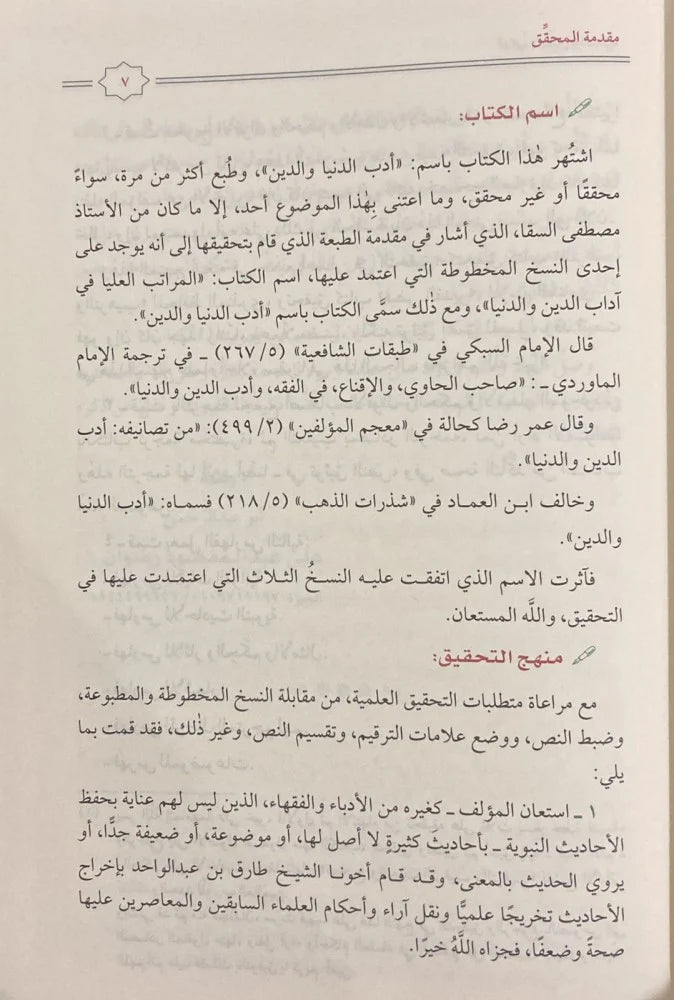 مقدمة المحقِّق
٧
اسم الكتاب:
اشتُهر هٰذا الكتاب باسم: «أدب الدنيا والدين»، وطُبع أكثر من مرة، سواءً
محققًا أو غير محقق، وما اعتنى بِهٰذا الموضوع أحد، إلا ما كان من الأستاذ
مصطفى السقا، الذي أشار في مقدمة الطبعة الذي قام بتحقيقها إلى أنه يوجد على
إحدى النسخ المخطوطة التي اعتمد عليها، اسم الكتاب: «المراتب العليا في
آداب الدين والدنيا»، ومع ذٰلك سمَّى الكتاب باسم «أدب الدنيا والدين».
قال الإمام السبكي في «طبقات الشافعية» (٥/ ٢٦٧) ـ في ترجمة الإمام
الماوردي ـ : «صاحب الحاوي، والإقناع، في الفقه، وأدب الدين والدنيا».
وقال عمر رضا كحالة في «معجم المؤلفين» (٢/ ٤٩٩): «من تصانيفه: أدب
الدين والدنيا».
وخالف ابن العماد في «شذرات الذهب» (٥/ ٢١٨) فسماه: «أدب الدنيا
والدين».
فآثرت الاسم الذي اتفقت عليه النسخُ الثلاث التي اعتمدت عليها في
التحقيق، واللَّه المستعان.
منهج التحقيق:
مع مراعاة متطلبات التحقيق العلمية، من مقابلة النسخ المخطوطة والمطبوعة،
وضبط النص، ووضع علامات الترقيم، وتقسيم النص، وغير ذٰلك، فقد قمت بما
يلي:
١ ـ استعان المؤلف ـ كغيره من الأدباء والفقهاء، الذين ليس لهم عناية بحفظ
الأحاديث النبوية ـ بأحاديثَ كثيرةٍ لا أصل لها، أو موضوعة، أو ضعيفة جدًّا، أو
يروي الحديث بالمعنى، وقد قام أخونا الشيخ طارق بن عبدالواحد بإخراج
الأحاديث تخريجًا علميًّا ونقل آراء وأحكام العلماء السابقين والمعاصرين عليها
صحةً وضعفًا، فجزاه اللَّهُ خيرًا.